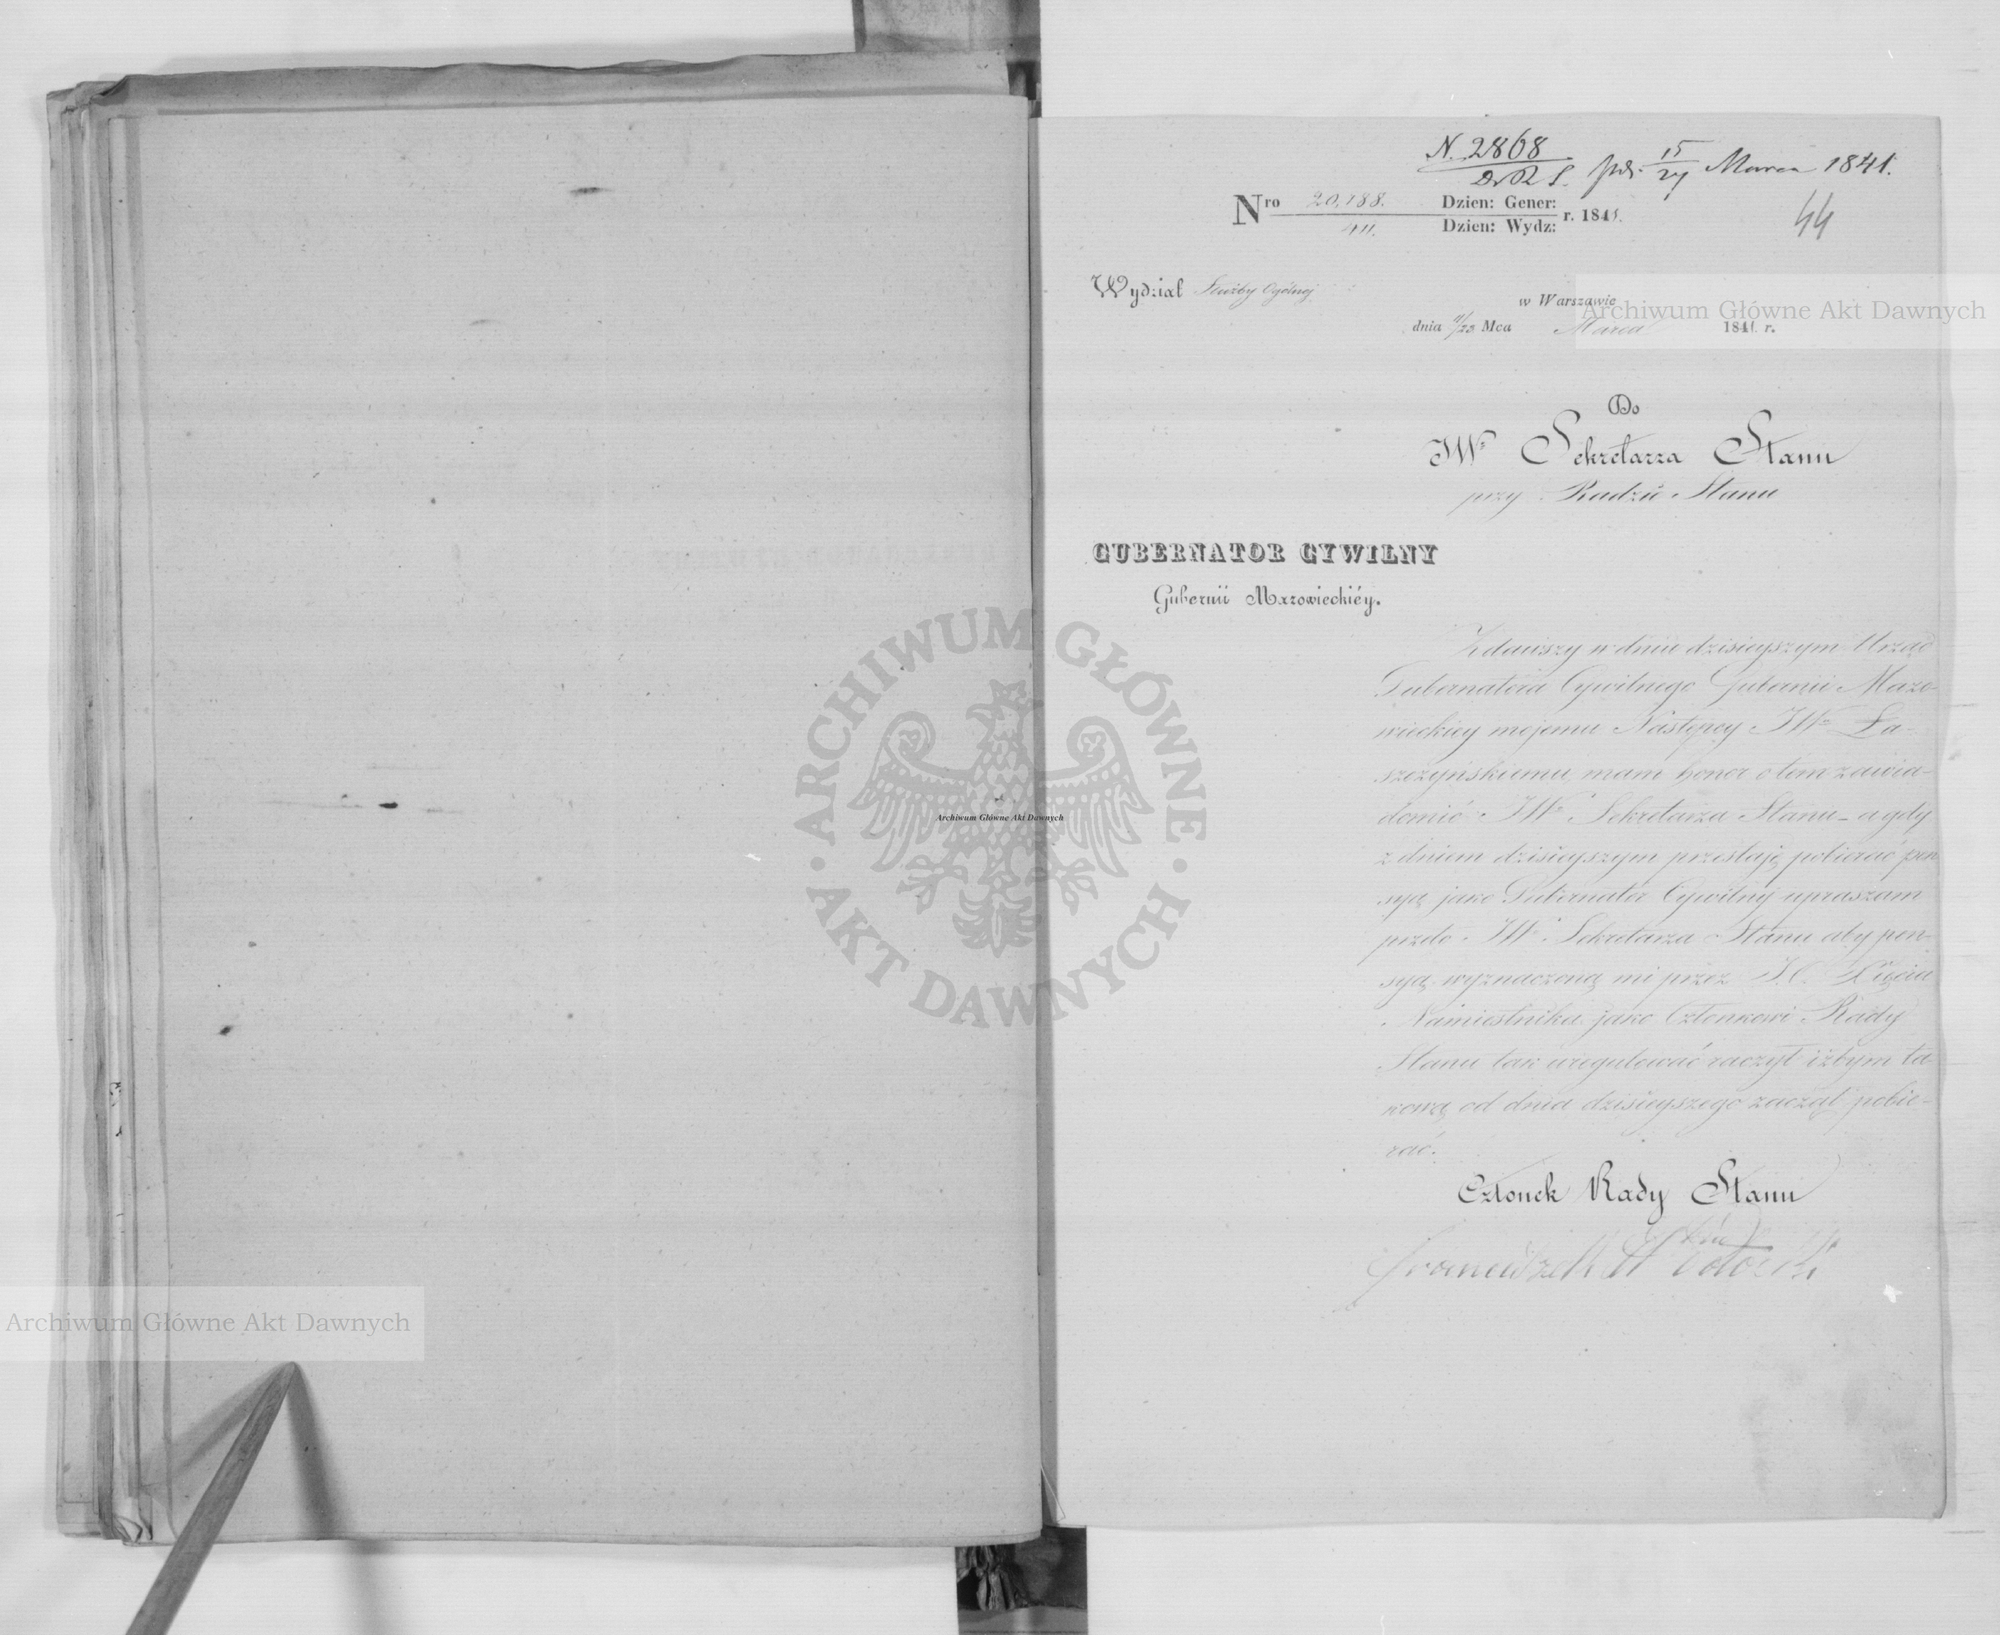 N. 2868
D. R. S. pds. 15/27 Marca 1841.
Nro 20,188. Dzien: Gener:
411. Dzien: Wydz: r. 1841.
44
Wydział Służby Ogólnej
w Warszawie
dnia 11/23 Mca Marca 1841. r.
Do
JWo Sekretarza Stanu
przy Radzie Stanu
GUBERNATOR CYWILNY
Gubernii Mazowieckiéy.
Zdawszy w dniu dzisieyszym Urząd
Gubernatora Cywilnego Gubernii Mazo-
wieckiey mojemu Następcy JWu Ła-
szczyńskiemu mam honor o tem zawia-
domić JWo Sekretarza Stanu – a gdy
z dniem dzisieyszym przestaję pobierać pen
syą jako Gubernator Cywilny upraszam
przeto JWo Sekretarza Stanu aby pen-
syą wyznaczoną mi przez J.O. Xięcia
Namiestnika jako Członkowi Rady
Stanu tak uregulować raczył iżbym ta-
kową od dnia dzisieyszego zaczął pobie-
rać.
Członek Rady Stanu
Archiwum Główne Akt Dawnych
Archiwum Główne Akt Dawnych
Archiwum Główne Akt Dawnych
ARCHIWUM GŁÓWNE · AKT DAWNYCH ·